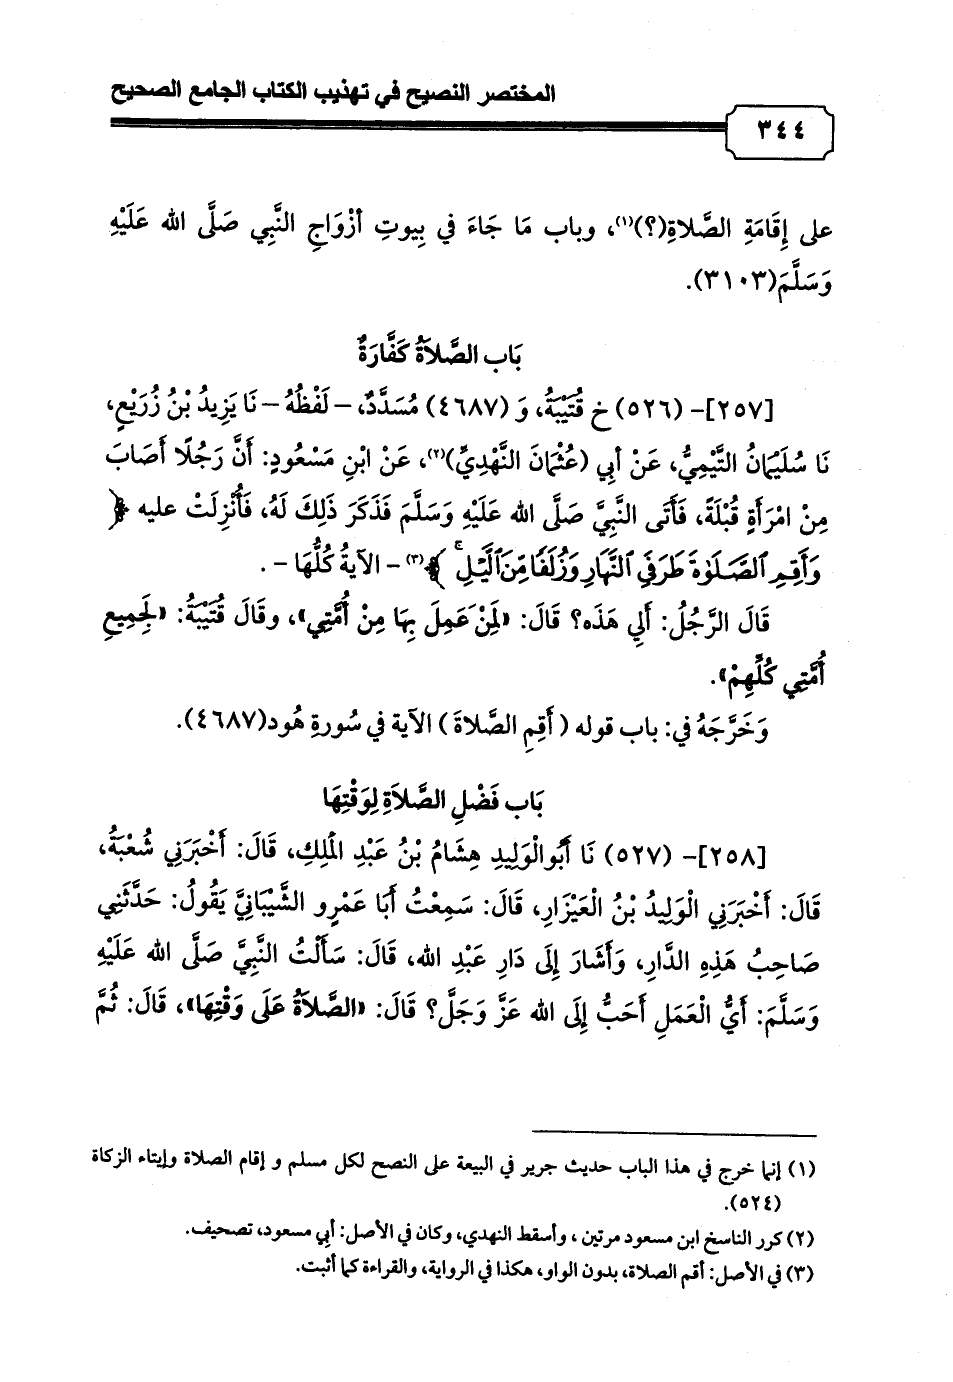 المختصر النصيح في تهذيب الكتاب الجامع الصحيح
٣٤٤
على إِقَامَةِ الصَّلاةِ(؟)(١)، وباب مَا جَاءَ في بِيوتِ أزْوَاجِ النَّبِي صَلَّى الله عَلَيْهِ
وَسَلَّمَ(٣١٠٣).
بَاب الصَّلاَةُ كَفَّارَةٌ
[٢٥٧]- (٥٢٦) خ قُتَيْبَةُ، وَ (٤٦٨٧) مُسَدَّدٌ، - لَفْظُهُ - نَا يَزِيدُ بْنُ زُرَيْعٍ،
نَا سُلَيْمَانُ التَّيْمِيُّ، عَنْ أبي (عُثْمَانَ النَّهْدِيِّ)(٢)، عَنْ ابنِ مَسْعُودٍ: أَنَّ رَجُلًا أَصَابَ
مِنْ امْرَأَةٍ قُبْلَةً، فَأَتَى النَّبِيَّ صَلَّى الله عَلَيْهِ وَسَلَّمَ فَذَكَرَ ذَلِكَ لَهُ، فَأُنْزِلَتْ عليه ﴿
وَأَقِمِ ٱلصَّلَوٰةَ طَرَفَيِ ٱلنَّهَارِ وَزُلَفًا مِّنَ ٱلَّيْلِ ۚ ﴾(٣) - الآيةُ كُلُّهَا - .
قَالَ الرَّجُلُ: أَلِي هَذَه؟ قَالَ: «لَمِنْ عَمِلَ بِهَا مِنْ أُمَّتِي»، وقَالَ قُتَيْبَةُ: «لَجِمِيعِ
أُمَّتِي كُلِّهِمْ».
وَخَرَّجَهُ في: باب قوله ( أَقِمِ الصَّلاةَ ) الآية في سُورةِ هُود(٤٦٨٧).
بَاب فَضْلِ الصَّلاَةِ لِوَقْتِهَا
[٢٥٨]- (٥٢٧) نَا أَبُوالْوَلِيدِ هِشَامُ بْنُ عَبْدِ الْمَلِكِ، قَالَ: أَخْبَرَنِي شُعْبَةُ،
قَالَ: أَخْبَرَنِي الْوَلِيدُ بْنُ الْعَيْزَارِ، قَالَ: سَمِعْتُ أَبَا عَمْرٍو الشَّيْبَانِيَّ يَقُولُ: حَدَّثَنِي
صَاحِبُ هَذِهِ الدَّارِ، وَأَشَارَ إِلَى دَارِ عَبْدِ الله، قَالَ: سَأَلْتُ النَّبِيَّ صَلَّى الله عَلَيْهِ
وَسَلَّمَ: أَيُّ الْعَمَلِ أَحَبُّ إِلَى الله عَزَّ وَجَلَّ؟ قَالَ: «الصَّلاَةُ عَلَى وَقْتِهَا»، قَالَ: ثُمَّ
(١) إنما خرج في هذا الباب حديث جرير في البيعة على النصح لكل مسلم و إقام الصلاة وإيتاء الزكاة
(٥٢٤).
(٢) كرر الناسخ ابن مسعود مرتين ، وأسقط النهدي، وكان في الأصل: أبي مسعود، تصحيف.
(٣) في الأصل: أقم الصلاة، بدون الواو، هكذا في الرواية، والقراءة كما أثبت.